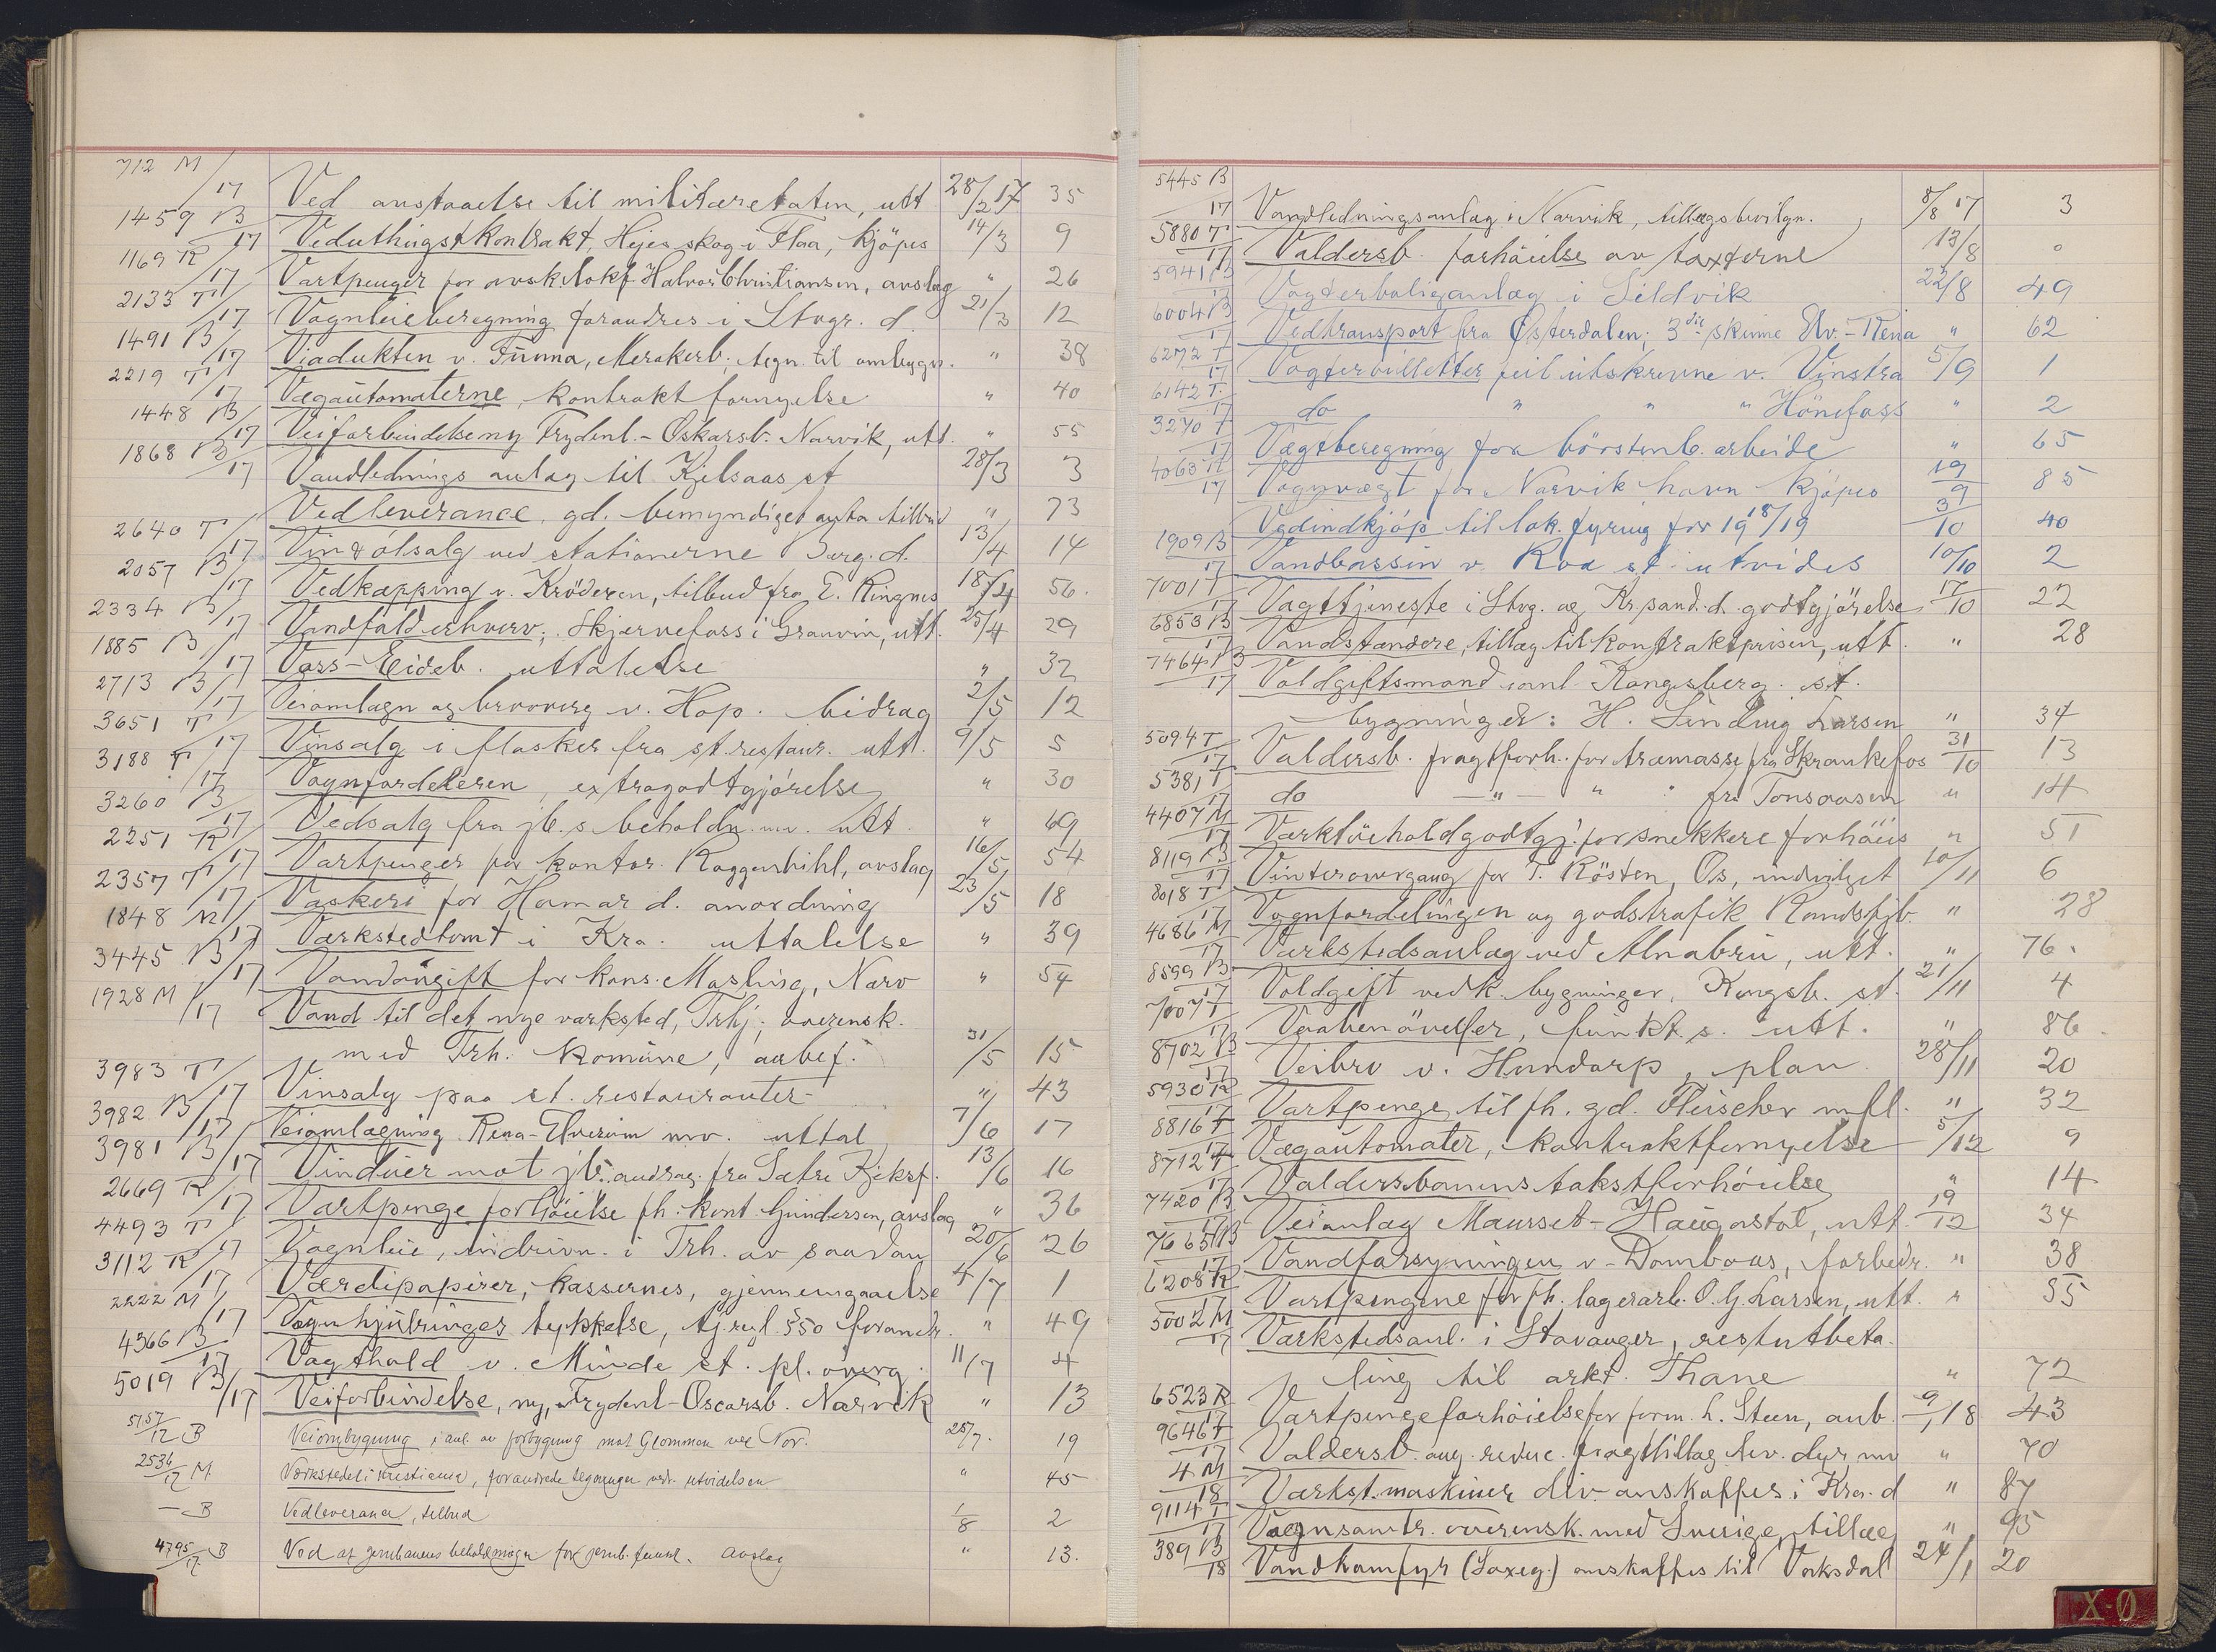 712 M/17 Ved anstaaelse til militæretaten, utt 28/2 17 35
1459 B/17 Veduthugstkontrakt, Hejes skog i Flaa, kjöpes 14/3 9
1169 R/17 Vartpenger for avsk. lokf Halvor Christiansen, avslag " 26
2133 T/17 Vognleieberegning forandres i Stvgr. d. 21/3 12
1491 B/17 Viadukten v. Funna, Merakerb; tegn. til ombygn. " 38
2219 T/17 Vegautomaterne, kontrakt fornyelse " 40
1448 B/17 Veiforbindelse ny Frydenl. - Oskarsb. Narvik, utt. " 55
1868 B/17 Vandlednings anlag til Kjelsaas st 28/3 3
Vedleverance, gd. bemyndiges anta tilbud " 73
2640 T/17 Vin & ölsalg ved stationerne Berg. d. 13/4 14
2057 B/17 Vedkapping v. Kröderen, tilbud fra E. Ringnes 18/4 56.
2334 B/17 Vandfald erhverv; Skjervefoss i Granvin, utt. 25/4 29
1885 B/17 Voss - Eideb. uttalelse " 32
2713 B/17 Veiomlægn og bro overg v. Hop. bidrag 2/5 12
3651 T/17 Vinsalg i flasker fra st. restaur. utt. 9/5 5
3188 T/17 Vognfordeleren, extragodtgjörelse " 30
3260 B/17 Vedsalg fra jb.s beholdn. mv. utt. " 69
2251 R/17 Vartpenger for kontor. Roggenbihl, avslag 16/5 54
2357 T/17 Vaskeri for Hamar d. anordning 23/5 18
1848 M/17 Værkstedtomt i Kra. uttalelse " 39
3445 B/17 Vandavgift for kons. Moshing, Narv " 54
1928 M/17 Vand til det nye værksted, Trhj; overensk.
med Trh. Komune, anbef. 31/5 15
3983 T/17 Vinsalg paa st. restauranter " 43
3982 B/17 Veiomlægning Rena - Elverum mv. uttal 7/6 17
3981 B/17 Vinduer mot jb. andrag. fra Sætre Kjeksf. 13/6 16
2669 R/17 Vartpenge forhöielse fh. kont. Gundersen, avslag " 36
4493 T/17 Vognleie, inddrivn. i Trh. av saadan 20/6 26
3112 R/17 Værdipapirer, kassernes, gjennemgaaelse 4/7 1
2222 M/17 Vognhjulringes tykkelse, tj.regl. §50 forandr. " 49
4366 B/17 Vagthold v. Minde st. pl. overg. 11/7 4
5019 B/17 Veiforbindelse, ny, Frydenl - Oscarsb. Narvik " 13
5157/17 B Veiombygning i anl. av forbygning mot Glommen ved Nor. 25/7. 19
2534/17 M. Værkstedet i Kristiania, forandrede tegninger vedr. utvidelsen " 45
— B Vedleverance, tilbud 1/8 2
4795/17 B Ved af jernbanens beholdninger for jernb. funkt. avslag " 13.
5445 B/17 Vandledningsanlag i Narvik, tillægsbevilgn. 8/8 17 3
5880 T/17 Valdersb. forhöielse av taxterne 13/8 "
5941 B/17 Vogterboliganlæg i Sildvik 22/8 49
6004 B/17 Vedtransport fra Österdalen; 3die skinne Elv. - Rena " 62
6272 T/17 Vogterbilletter feil utskrevne v. Vinstra 5/9 1
6142 T./17 do " " " Hönefoss " 2
3270 T/17 Vægtberegning for börstenb. arbeide " 65
4063 M/17 Vognvægt for Narvik havn kjöpes 19/9 85
Vedindkjöp til lok. fyring for 1918/19 3/10 40
1909 B/17 Vandbassin v. Roa st. utvides 10/10 2
7001 T/17 Vagttjeneste i Stvg. og Kr.sand. d. godtgjörelse 17/10 22
6853 B/17 Vandstandere, tillæg til kontraktprisen, utt. " 28
7464 B/17 Voldgiftsmand anl. Kongsberg. st.
bygninger: H. Sinding Larsen " 34
5094 T/17 Valdersb. fragtforh. for træmasse fra Skrankefos 31/10 13
5381 T/17 do — " — " fra Tonsaasen " 14
4407 M/17 Værktöiholdgodtgj. for snekkere forhöies " 51
8119 B/17 Vinterovergang for T. Rösten, Os, indvilget 10/11 6
8018 T/17 Vognfordelingen og godstrafik Randsfjb. " 28
4686 M/17 Værkstedsanlæg ved Alnabru, utt. " 76.
8599 B/17 Voldgift vedk. bygninger, Kongsb. st. 21/11 4
7007 T/17 Vaabenövelser, funkt.s. utt. " 86.
8702 B/17 Veibro v. Hundorp, plan 28/11 20
5930 R/17 Vartpenge til fh. gd. Fleischer m fl. " 32
8816 T/17 Vegautomater, kontraktfornyelse 5/12 9
8712 T/17 Valdersbanens takstforhöielse " 14
7420 B/17 Veianlæg Maurset - Haugastöl, utt. 19/12 34
7665 B/17 Vandforsyningen v. Dombaas, forbedr. " 38
6208 R/17 Vartpengene for fh. lagerarb. O. G. Larsen, utt. " 55
5002 M/17 Værkstedsanl. i Stavanger, restutbeta-
ling til arkt. Thane " 72
6523 R/17 Vartpengeforhöielse for form. L. Steen, anb. 9/1 18 43
9646 T/17 Valdersb. ang. reduc. fragttillæg lev. dyr mv " 70
4 M/18 Værkst. maskiner div. anskaffes i Kra. d " 87
9114 T/17 Vognsamtr. overensk. med Sverige, tillæg " 95
389 B/18 Vandkamfyr (Saxeg.) anskaffes til Vaksdal 24/1 20
X-Ø